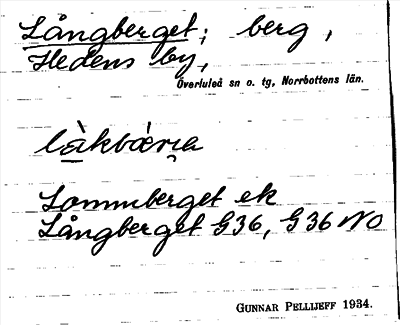 Långberget; berg,
Hedens by,
Överluleå sn o. tg, Norrbottens län.
làkbǽrı̯a
Lommberget ek
Långberget G36, G36 NO
GUNNAR PELLIJEFF 1934.